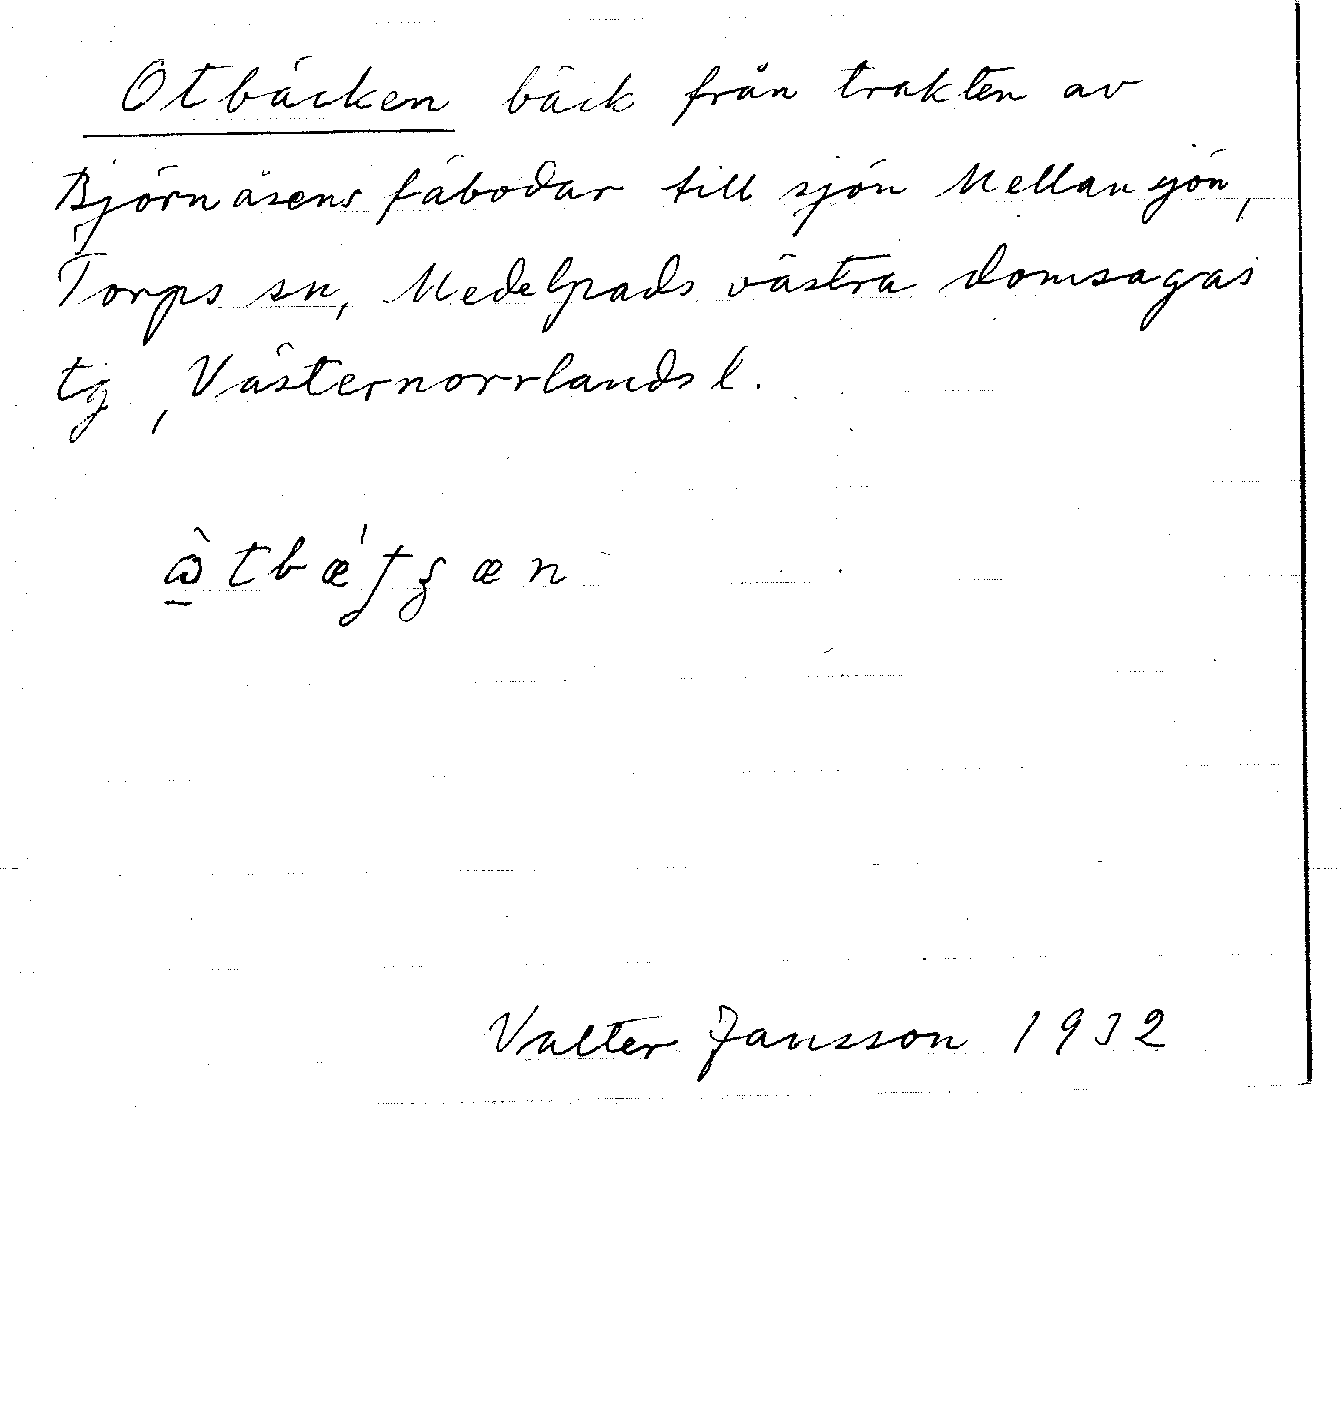 Otbäcken bäck från trakten av
Björnåsens fäbodar till sjön Mellansjön,
Torps sn, Medelpads västra domsagas
tg, Västernorrlands l.
Valter Jansson 1932